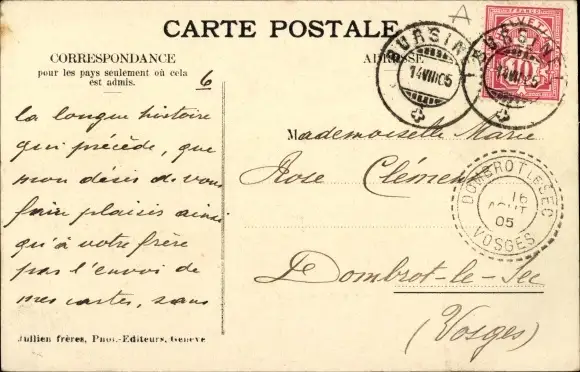 CARTE POSTALE
A
CORRESPONDANCE
pour les pays seulement où cela
est admis.
ADRESSE
6
HELVETIA
10
BURSINEL
14 VIII 05
BURSINEL
14 VIII 05
la longue histoire
qui précède, que
mon désir de vous
faire plaisir ainsi
qu'à votre frère
par l'envoi de
mes cartes, sans
Mademoiselle Marie
Rose Clément
Dombrot-le-Sec
(Vosges)
DOMBROT LE SEC
16
AOUT
05
VOSGES
Jullien frères, Phot.-Editeurs, Genève